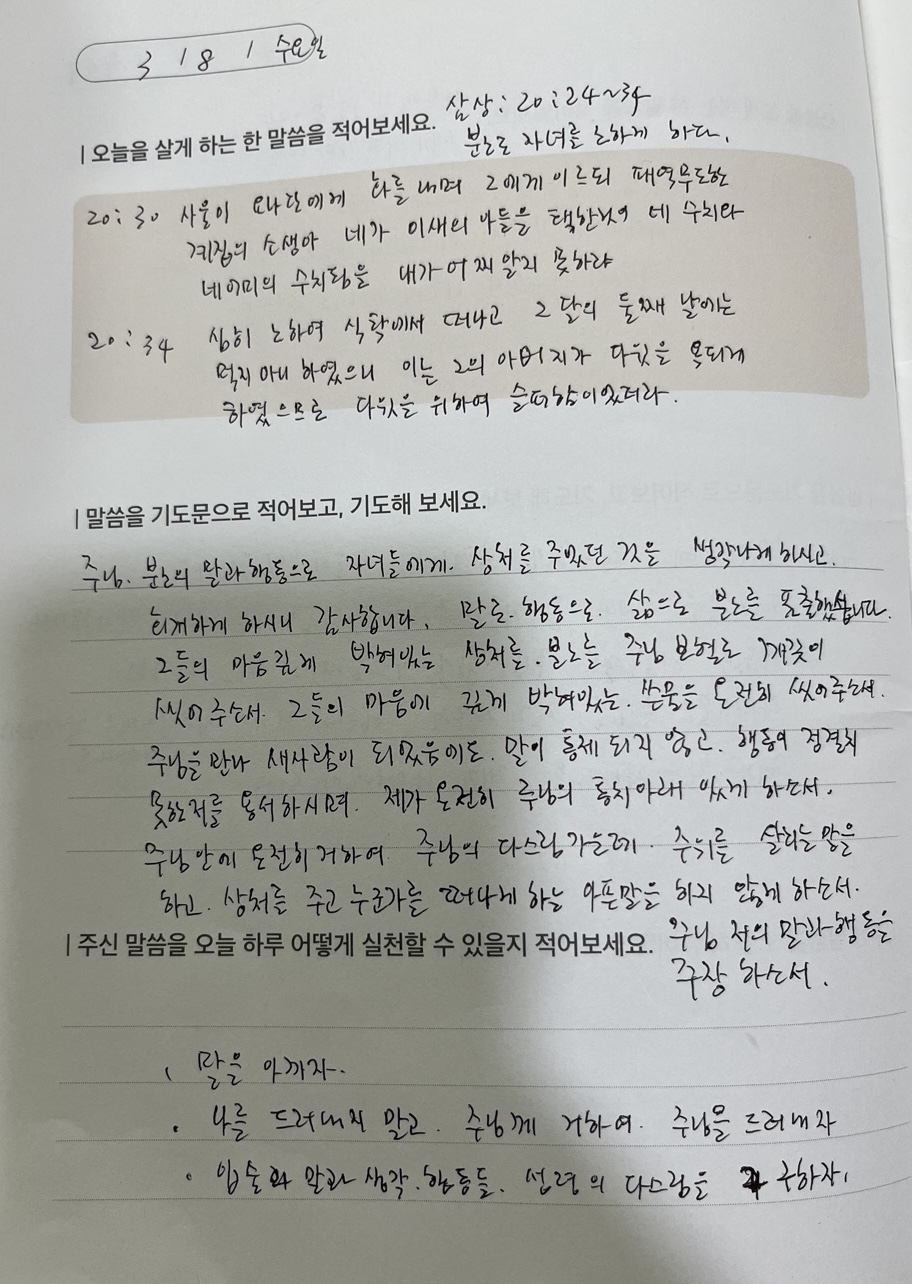 3 / 8 / 수요일
삼상: 20:24~34
| 오늘을 살게 하는 한 말씀을 적어보세요.
분노로 자녀를 노하게 하다.
20:30 사울이 요나단에게 화를 내며 그에게 이르되 패역무도한
계집의 소생아 네가 이새의 아들을 택한것이 네 수치와
네 어미의 수치됨을 내가 어찌 알지 못하랴
20:34 심히 노하여 식탁에서 떠나고 그 달의 둘째 날에는
먹지 아니 하였으니 이는 그의 아버지가 다윗을 욕되게
하였으므로 다윗을 위하여 슬퍼함이었더라.
| 말씀을 기도문으로 적어보고, 기도해 보세요.
주님. 분노의 말과 행동으로 자녀들에게. 상처를 주었던 것을 생각나게 하시고.
회개하게 하시니 감사합니다. 말로. 행동으로. 삶으로 분노를 표출했습니다.
그들의 마음 깊게 박혀있는 상처를. 분노를 주님 보혈로 깨끗이
씻어 주소서. 그들의 마음에 깊게 박혀있는. 쓴물을 온전히 씻어주소서.
주님을 만나 새사람이 되었음에도. 말이 통제 되지 않고. 행동이 정결치
못한 저를 용서하시며. 제가 온전히 주님의 통치아래 있게 하소서.
주님안에 온전히 거하여 주님의 다스림 가운데. 주위를 살리는 말을
하고. 상처를 주고 누군가를 떠나게 하는 아픈말을 하지 않게 하소서.
| 주신 말씀을 오늘 하루 어떻게 실천할 수 있을지 적어보세요.
주님 저의 말과 행동을
주장 하소서.
· 말을 아끼자.
· 나를 드러내지 말고. 주님께 거하여. 주님을 드러내자
· 입술과 말과 생각. 행동들. 성령의 다스림을 구하자.